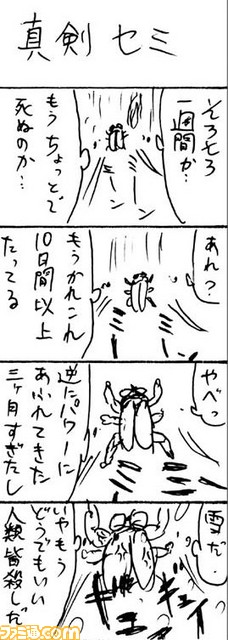 真剣セミ
そろそろ
一週間か…
もうちょっとで
死ぬのか…
あれ?
もうかれこれ
10日間以上
たってる
やべっ
逆にパワーに
あふれてきた
三ヶ月すぎたし
雪だ。
いやもう
どうでもいい
人類皆殺しだ
ファミ通.com